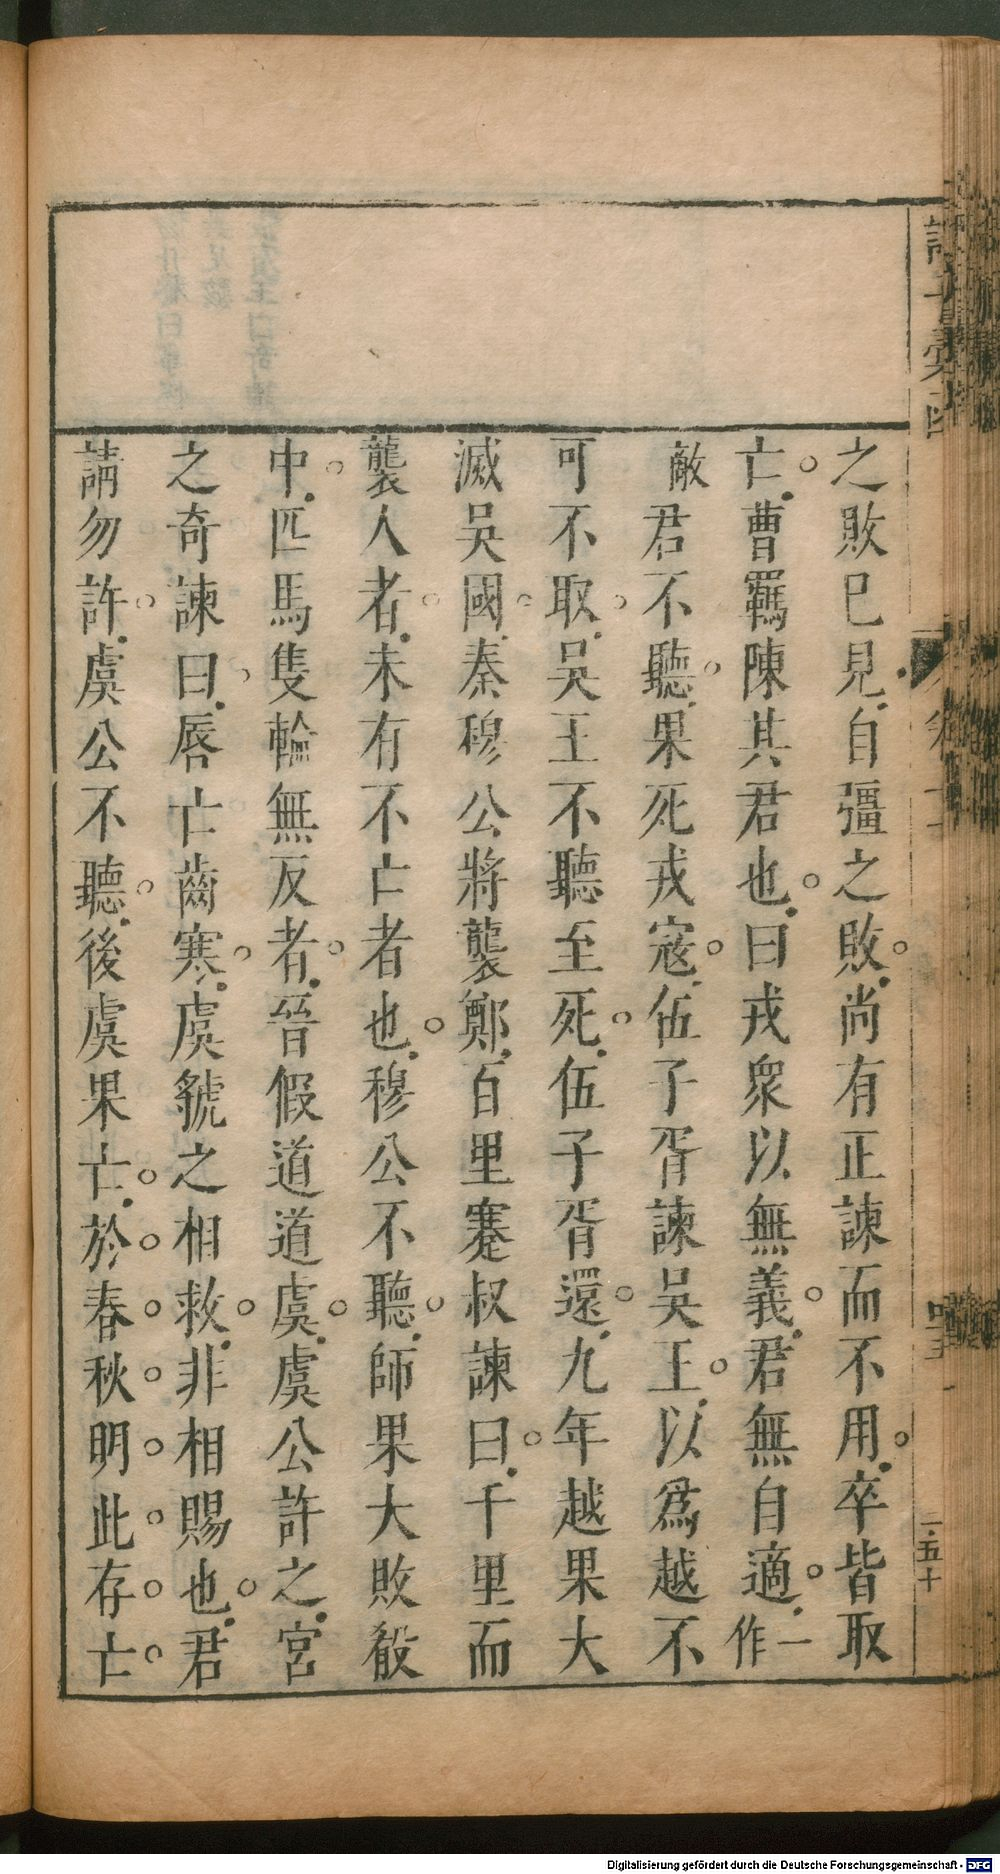 之敗已見自彊之敗尚有正諫而不用卒皆取
亡曹羈陳其君也曰戎衆以無義君無自適一作
敵君不聽果死戎寇伍子胥諫吳王以爲越不
可不取吳王不聽至死伍子胥還九年越果大
滅吳國秦穆公將襲鄭百里蹇叔諫曰千里而
襲人者未有不亡者也穆公不聽師果大敗殽
中匹馬隻輪無反者晉假道道虞虞公許之宮
之奇諫曰唇亡齒寒虞虢之相救非相賜也君
請勿許虞公不聽後虞果亡於春秋明此存亡
Digitalisierung gefördert durch die Deutsche Forschungsgemeinschaft - DFG